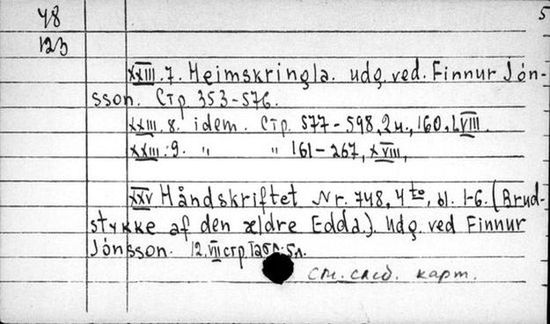 48 5
123
XXIII.7. Heimskringla. udg. ved. Finnur Jón-
sson. Стр 353-576.
XXIII. 8. idem. Стр. 577-598, 2 н., 160, LVIII.
XXIII. 9. " " 161-267, XVIII,
XXV Håndskriftet Nr. 748, 4to, bl. 1-6. (Brud-
stykke af den ældre Edda.). Udg. ved Finnur
Jónsson. 12. VII стр Табл. 5л.
См. след. карт.